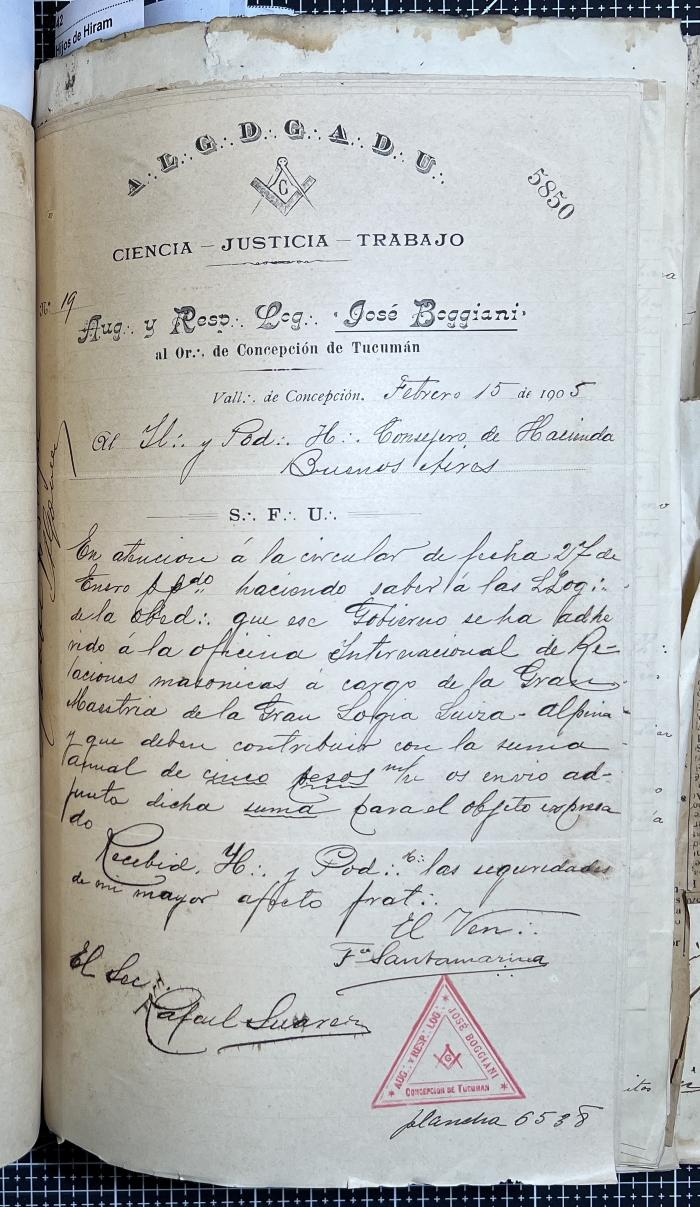 42
Hijos de Hiram
A∴ L∴ G∴ D∴ G∴ A∴ D∴ U∴
G
5850
CIENCIA — JUSTICIA — TRABAJO
N.º 19
Aug∴ y Resp∴ Log∴ "José Boggiani"
al Or∴ de Concepción de Tucumán
Vall∴ de Concepción. Febrero 15 de 1905
Al Il∴ y Pod∴ H∴ Consejero de Hacienda
Buenos Aires
S∴ F∴ U∴
En atencion á la circular de fecha 27 de
Enero ppdo haciendo saber á las LLog∴
de la obed∴ que ese Gobierno se ha adhe
rido á la oficina Internacional de Re-
laciones masonicas á cargo de la Gran
Maestria de la Gran Logia Suiza-Alpina
y que deben contribuir con la suma
anual de cinco pesos m/n os envio ad-
junto dicha suma para el objeto expresa
do
Recebid, H∴ y Pod∴ h∴ las seguridades
de mi mayor afecto frat∴
El Ven∴
Fco Santamarina
El Sec∴
Rafael Suarez
AUG∴ Y RESP∴ LOG∴ JOSÉ BOGGIANI
CONCEPCION DE TUCUMAN
plancha 6538